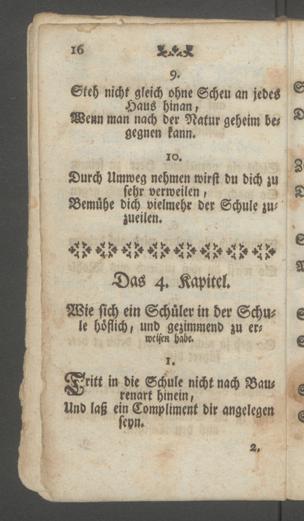 16
9.
Steh nicht gleich ohne Scheu an jedes
Haus hinan,
Wenn man nach der Natur geheim be-
gegnen kann.
10.
Durch Umweg nehmen wirst du dich zu
sehr verweilen,
Bemühe dich vielmehr der Schule zu-
zueilen.
Das 4. Kapitel.
Wie sich ein Schüler in der Schu-
le höflich, und gezimmend zu er-
weisen habe.
1.
Tritt in die Schule nicht nach Bau-
renart hinein,
Und laß ein Compliment dir angelegen
seyn.
2.